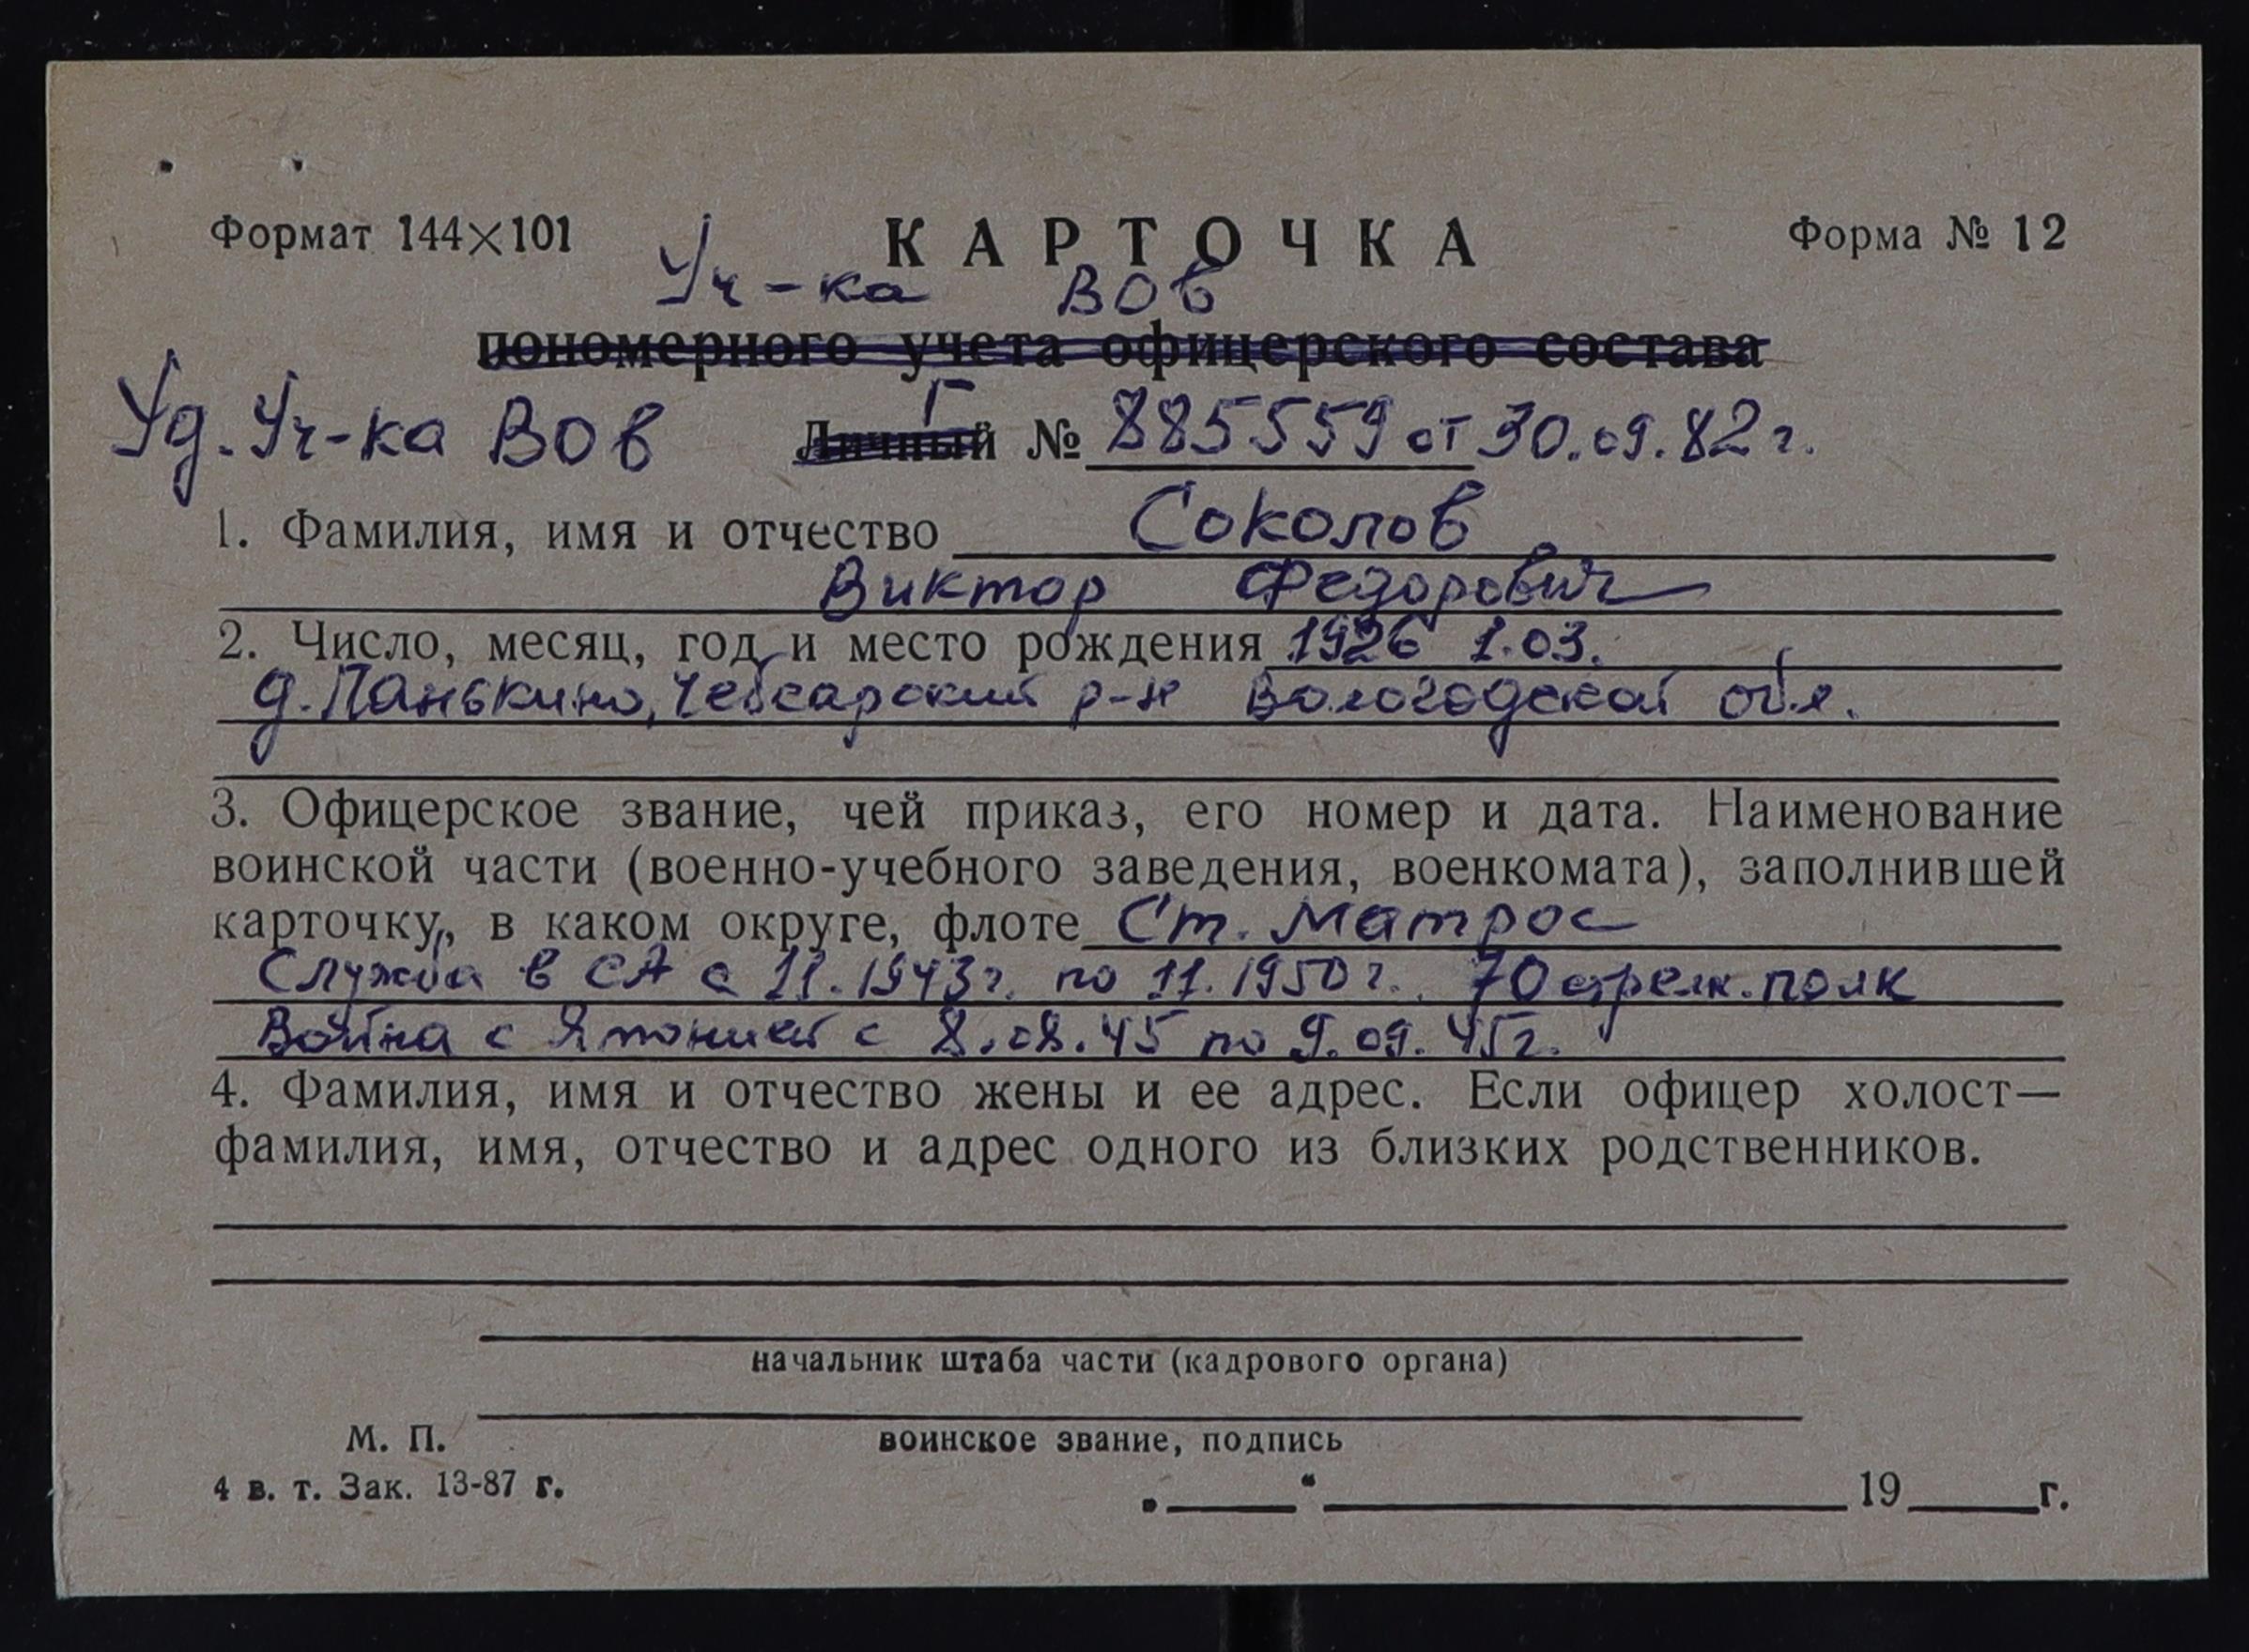 Формат 144×101 КАРТОЧКА Форма № 12
Уч-ка ВОв
пономерного учета офицерского состава
Уд. Уч-ка ВОв Личный Г № 885559 от 30.09.82 г.
1. Фамилия, имя и отчество Соколов
Виктор Федорович
2. Число, месяц, год и место рождения 1926 1.03.
д. Панькино, Чебсарский р-н Вологодской обл.
3. Офицерское звание, чей приказ, его номер и дата. Наименование
воинской части (военно-учебного заведения, военкомата), заполнившей
карточку, в каком округе, флоте Ст. Матрос
Служба в СА с 11.1943г. по 11.1950г. 70 стрелк. полк
Война с Японией с 8.08.45 по 9.09.45г.
4. Фамилия, имя и отчество жены и ее адрес. Если офицер холост—
фамилия, имя, отчество и адрес одного из близких родственников.
начальник штаба части (кадрового органа)
М. П. воинское звание, подпись
4 в. т. Зак. 13-87 г.
„ “ 19 г.